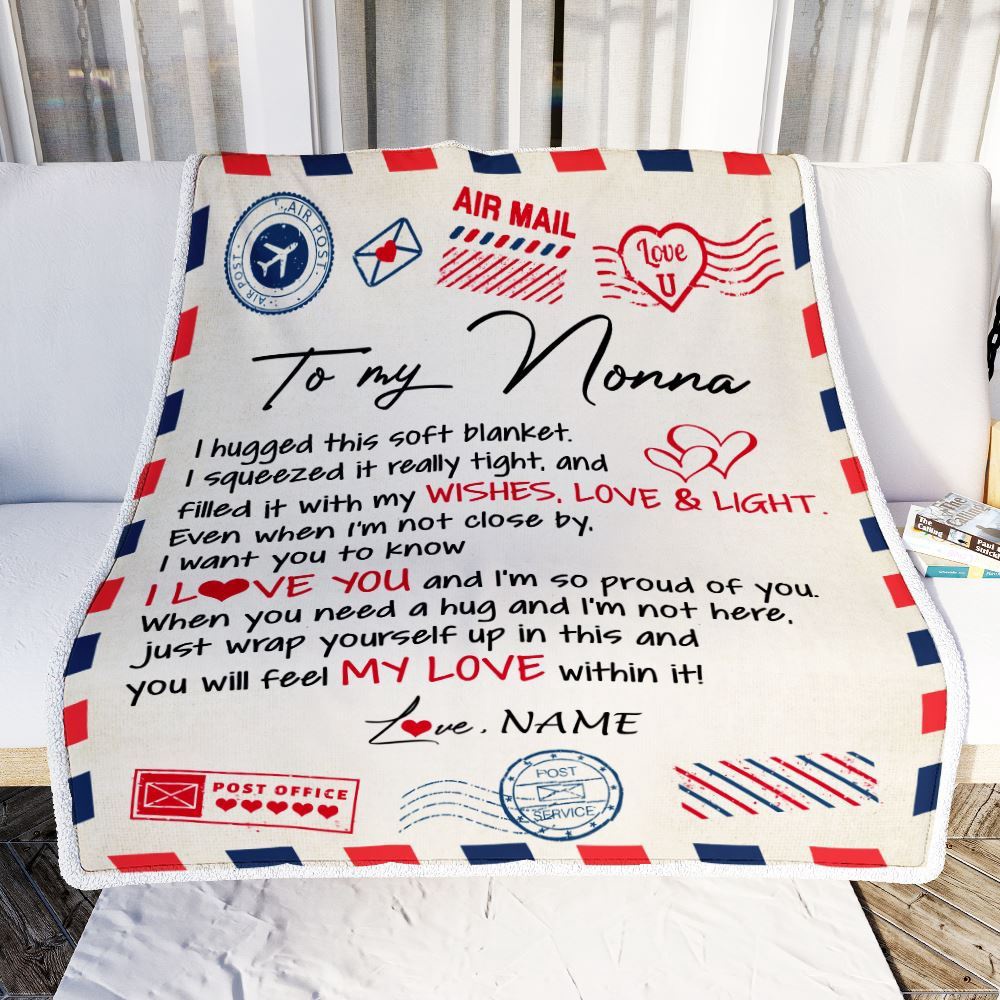 AIR POST
AIR POST
AIR MAIL
Love
U
To my Nonna
I hugged this soft blanket.
I squeezed it really tight, and
filled it with my WISHES, LOVE & LIGHT.
Even when I'm not close by,
I want you to know
I L❤VE YOU and I'm so proud of you.
When you need a hug and I'm not here,
just wrap yourself up in this and
you will feel MY LOVE within it!
L❤ve, NAME
POST OFFICE
POST
SERVICE
The
Calling
Paul